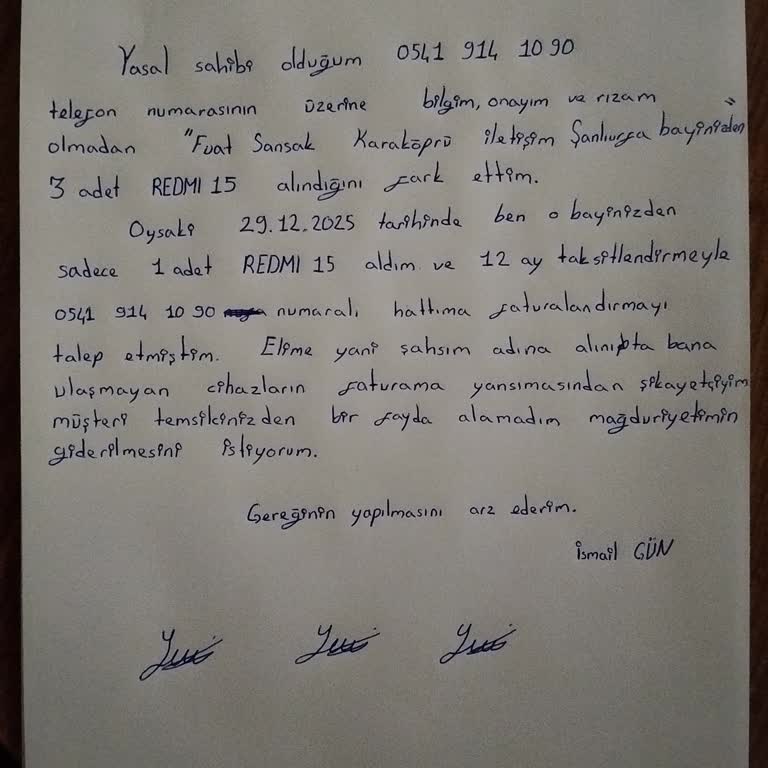 Yasal sahibi olduğum 0541 914 10 90
telefon numarasının üzerine bilgim, onayım ve rızam
olmadan "Fuat Sansak Karaköprü iletişim Şanlıurfa bayinizden"
3 adet REDMI 15 alındığını fark ettim.
Oysaki 29.12.2025 tarihinde ben o bayinizden
sadece 1 adet REDMI 15 aldım ve 12 ay taksitlendirmeyle
0541 914 10 90 numaralı hattıma faturalandırmayı
talep etmiştim. Elime yani şahsım adına alınıpta bana
ulaşmayan cihazların faturama yansımasından şikayetçiyim
müşteri temsilcinizden bir fayda alamadım mağduriyetimin
giderilmesini istiyorum.
Gereğinin yapılmasını arz ederim.
İsmail GÜN